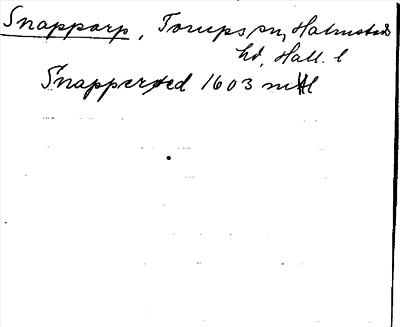 Snapparp, Torups sn, Halmstads
hd, Hall. l
Snapperød 1603 mtl